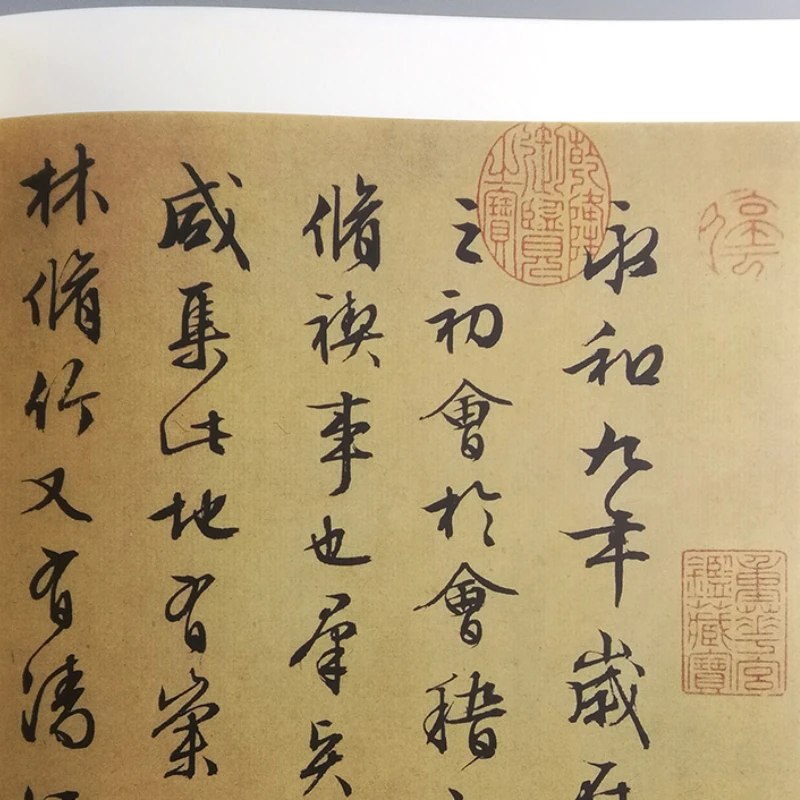 停雲
重華宮鑑藏寶
乾隆御覽之寶
永和九年歲
之初會於會稽
脩禊事也羣賢
咸集此地有崇
林脩竹又有清